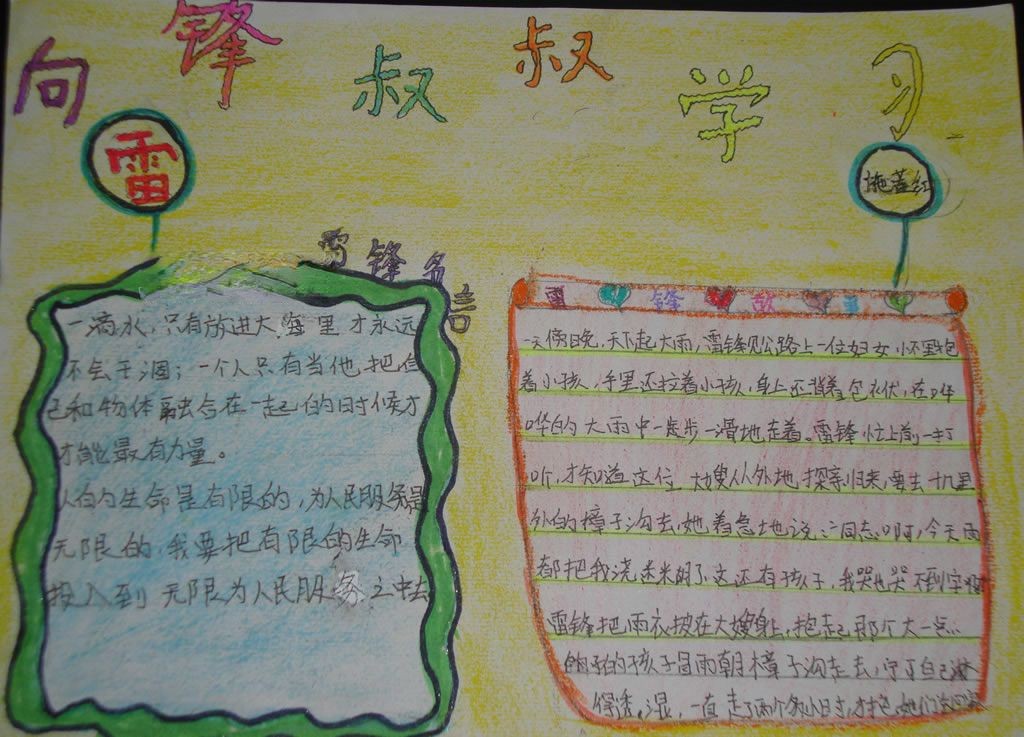 向锋叔叔学习
雷
施蓋红
雷锋名言
一滴水,只有放进大海里才永远
不会干涸;一个人只有当他把自
己和物体融合在一起的时候才
才能最有力量。
人的生命是有限的,为人民服务是
无限的,我要把有限的生命
投入到 无限为人民服务之中去
雷锋故
一天傍晚,天下起大雨,雷锋见公路上一位妇女,怀里包
着小孩,手里还拉着小孩,身上还背着包衣伏,在哗
哗的大雨中一走步一滑地走着。雷锋忙上前一打
听,才知道这位大嫂从外地探亲归来,要去十几里
外的樟子沟去,她着急地说:同志啊,今天雨
都把我浇迷米胡了这还有孩子,我哭也哭不到家
雷锋把雨衣披在大嫂身上,抱起那个大一点
的孩子冒雨朝樟子沟走去,宁可自己淋
得透湿,一直走了两个多小时,才把她们送回家